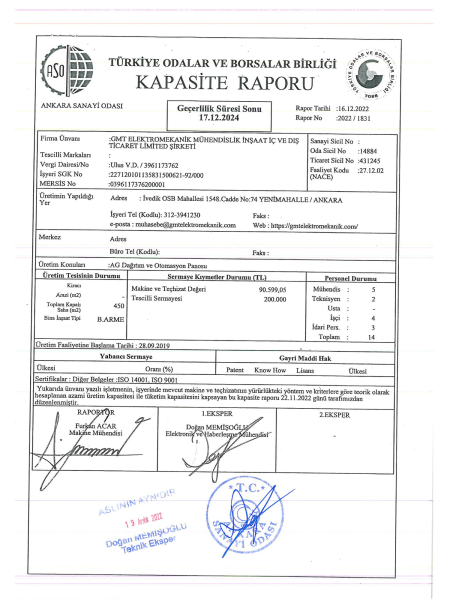 ASO
TÜRKİYE ODALAR VE BORSALAR BİRLİĞİ
KAPASİTE RAPORU
ANKARA SANAYİ ODASI
Geçerlilik Süresi Sonu
17.12.2024
Rapor Tarihi :16.12.2022
Rapor No :2022 / 1831
Firma Ünvanı :GMT ELEKTROMEKANİK MÜHENDİSLİK İNŞAAT İÇ VE DIŞ
TİCARET LİMİTED ŞİRKETİ
Tescilli Markaları :
Vergi Dairesi/No :Ulus V.D. / 3961173762
İşyeri SGK No :22712010113583150062​1-92/000
MERSİS No :0396117376200001
Sanayi Sicil No :
Oda Sicil No :14884
Ticaret Sicil No :431245
Faaliyet Kodu :27.12.02
(NACE)
Üretimin Yapıldığı
Yer
Adres : İvedik OSB Mahallesi 1548.Cadde No:74 YENİMAHALLE / ANKARA
İşyeri Tel (Kodlu): 312-3941230 Faks :
e-posta : muhasebe@gmtelektromekanik.com Web : https://gmtelektromekanik.com/
Merkez Adres
Büro Tel (Kodlu): Faks :
Üretim Konuları :AG Dağıtım ve Otomasyon Panosu
Üretim Tesisinin Durumu Sermaye Kıymetler Durumu (TL) Personel Durumu
Kiracı
Arazi (m2) -
Toplam Kapalı Saha (m2) 450
Bina İnşaat Tipi B.ARME
Makine ve Teçhizat Değeri 90.599,05
Tescilli Sermayesi 200.000
Mühendis : 5
Teknisyen : 2
Usta : -
İşçi : 4
İdari Pers. : 3
Toplam : 14
Üretim Faaliyetine Başlama Tarihi : 28.09.2019
Yabancı Sermaye Gayri Maddi Hak
Ülkesi Oranı (%) Patent Know How Lisans Ülkesi
Sertifikalar : Diğer Belgeler :ISO 14001, ISO 9001
Yukarıda ünvanı yazılı işletmenin, işyerinde mevcut makine ve teçhizatının yürürlükteki yöntem ve kriterlere göre teorik olarak
hesaplanan azami üretim kapasitesi ile tüketim kapasitesini kapsayan bu kapasite raporu 22.11.2022 günü tarafımızdan
düzenlenmiştir.
RAPORTÖR 1.EKSPER 2.EKSPER
Furkan ACAR Doğan MEMİŞOĞLU
Makine Mühendisi Elektronik ve Haberleşme Mühendisi
ASLININ AYNIDIR
19 Aralık 2022
Doğan MEMİŞOĞLU
Teknik Eksper
T.C.
ANKARA
SANAYİ ODASI